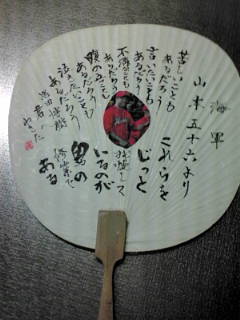 海軍
山本五十六より
苦しいことも
あるだろう
言いたいことも
あるだろう
不満なことも
あるだろう
腹の立つことも
あるだろう
泣きたいことも
あるだろう
これらを
じっと
我慢して
いるのが
男の
修業で
ある